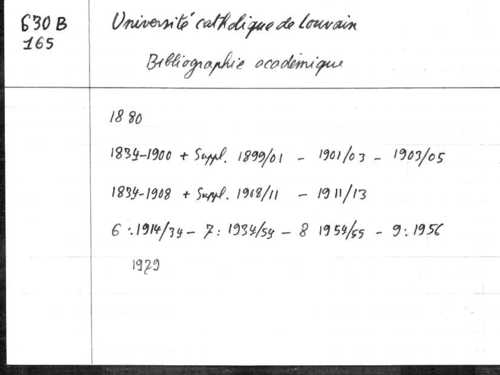 630 B
165
Université catholique de Louvain
Bibliographie académique
1880
1834-1900 + Suppl. 1899/01 - 1901/03 - 1903/05
1834-1908 + Suppl. 1908/11 - 1911/13
6 : 1914/34 - 7 : 1934/54 - 8 1954/55 - 9 : 1956
1979